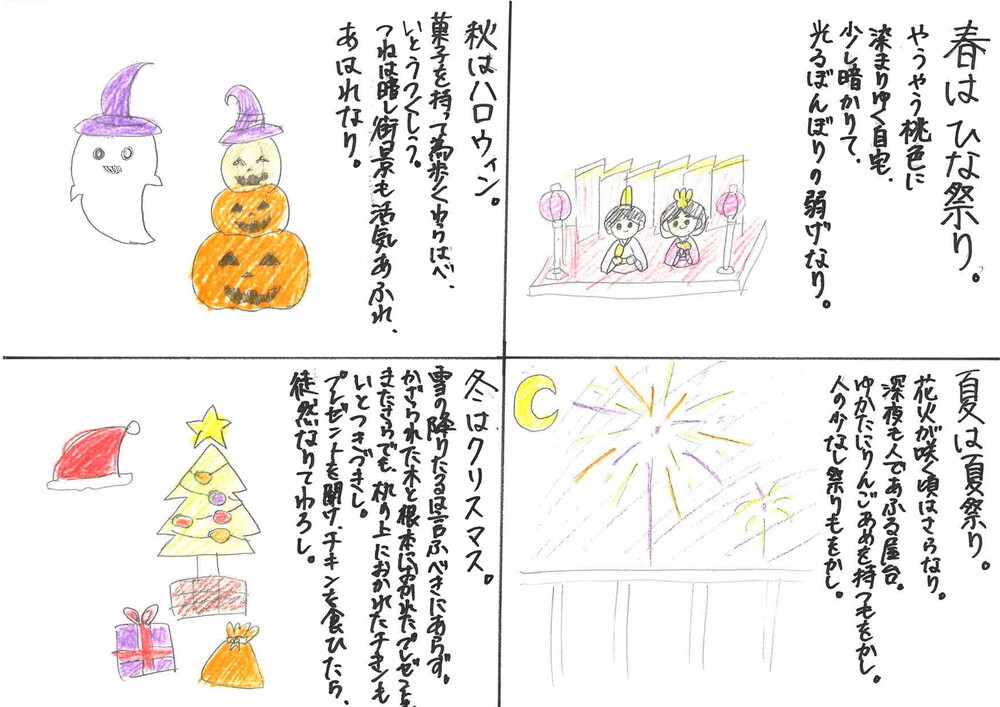 春はひな祭り。
やうやう桃色に
染まりゆく自宅、
少し暗かりて、
光るぼんぼりの弱げなり。
夏は夏祭り。
花火が咲く頃はさらなり。
深夜も人であふる屋台。
ゆかたにりんごあめを持つもをかし。
人の少なし祭りもをかし。
秋はハロウィン。
菓子を持って為歩くわらはべ、
いとうつくしう。
つねは暗し街景も活気あふれ、
あはれなり。
冬はクリスマス。
雪の降りたるは言ふべきにあらず。
かざられた木と根本におかれたプレゼント、
またさらでも、机の上におかれたチキンも
いとつきづきし。
プレゼントを開け、チキンを食ひたら、
徒然なりてわろし。